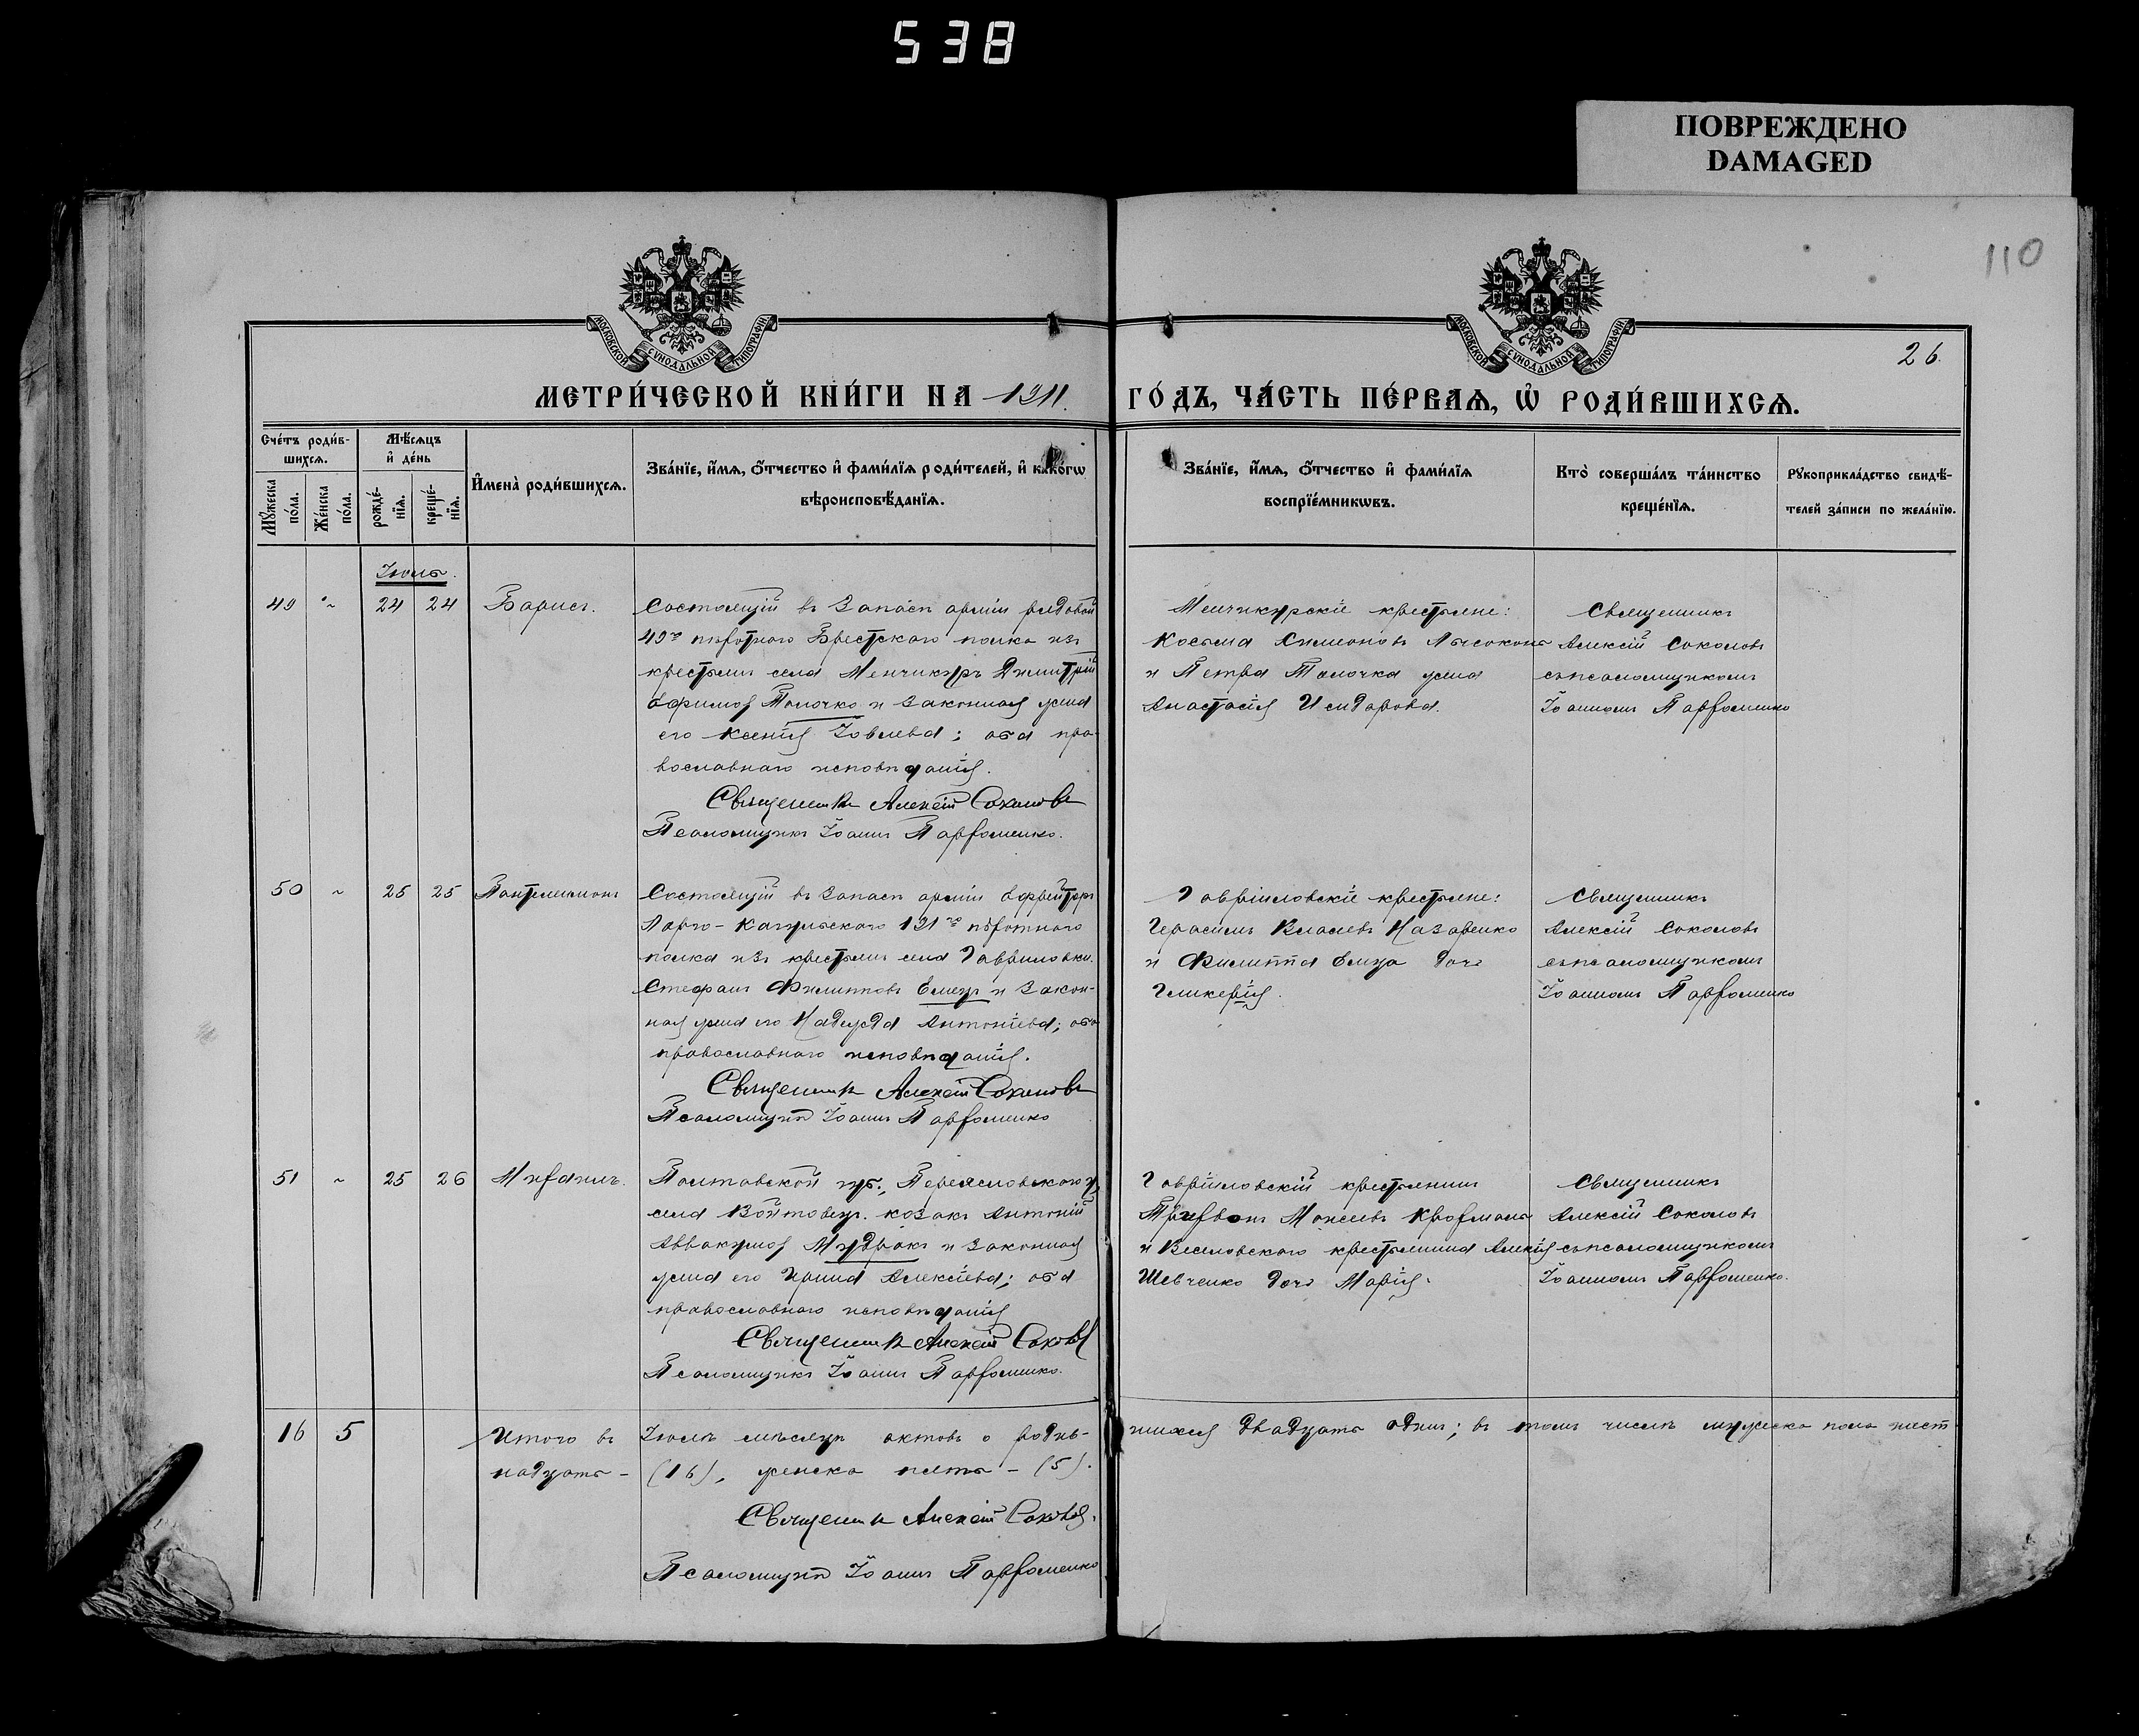 538
ПОВРЕЖДЕНО
DAMAGED
110
МОСКОВСКОЙ СѴНОДАЛЬНОЙ ТИПОГРАФІИ
МОСКОВСКОЙ СѴНОДАЛЬНОЙ ТИПОГРАФІИ
26.
МЕТРИ́ЧЕСКОЙ КНИ́ГИ НА 1911.
ГО́ДЪ, ЧА́СТЬ ПЕ́РВАѦ, Ѡ҆ РОДИ́ВШИХСѦ.
Сче́тъ роди́в-
шихсѧ.
Мꙋ́жеска по́ла.
Же́нска по́ла.
Мѣ́сѧцъ
и҆ де́нь
рожде́-нїѧ.
креще́-нїѧ.
И҆мена̀ роди́вшихсѧ.
Зва́нїе, и҆́мѧ, ѻ҆́тчество и҆ фами́лїѧ роди́телей, и҆ како́гѡ
вѣроисповѣ́данїѧ.
Зва́нїе, и҆́мѧ, ѻ҆́тчество и҆ фами́лїѧ
воспрїе́мникѡвъ.
Кто̀ соверша́лъ та́инство
креще́нїѧ.
Рꙋкоприкла́дство свидѣ́-
телей за́писи по жела́нїю.
Іюль.
49 ~ 24 24 Борисъ.
Состоящій въ запасѣ арміи рядовой
49го пѣхотнаго Брестскаго полка изъ
крестьянъ села Менчикуръ Димитрій
Ефимовъ Толочко и законная жена
его Ксенія Іовлева; оба пра-
вославнаго исповѣданія.
Священникъ Алексій Соколовъ
Псаломщикъ Іоаннъ Парфоменко.
Менчикурскіе крестьяне:
Косьма Симеоновъ Лысоконь
и Петра Толочка жена
Анастасія Исидорова.
Священникъ
Алексій Соколовъ
съ псаломщикомъ
Іоанномъ Парфоменко
50 ~ 25 25 Пантелеимонъ
Состоящій въ запасѣ арміи ефрейторъ
Ларго-Кагульскаго 191го пѣхотнаго
полка изъ крестьянъ села Гавриловки.
Стефанъ Филипповъ Емецъ и закон-
ная жена его Надежда Антоніева; оба
православнаго исповѣданія.
Священникъ Алексій Соколовъ
Псаломщикъ Іоаннъ Парфоменко
Гавріиловскіе крестьяне:
Герасимъ Власіевъ Назаренко
и Филиппа Емца дочь
Гликерія.
Священникъ
Алексій Соколовъ
съ псаломщикомъ
Іоанномъ Парфоменко
51 ~ 25 26 Михаилъ.
Полтавской губ., Переяславскаго у,
села Войтовецъ. козакъ Антоній
Аввакумовъ Мудракъ и законная
жена его Ирина Алексіева; оба
православнаго исповѣданія
Священникъ Алексій Соколовъ
Псаломщикъ Іоаннъ Парфоменко.
Гавріиловскій крестьянинъ
Трифонъ Моисеевъ
и Веселовскаго крестьянина Алексія
Шевченко дочь Марія.
Священникъ
Алексій Соколовъ
съ псаломщикомъ
Іоанномъ Парфоменко.
16 5 Итого въ Іюлѣ мѣсяцѣ актовъ о родив-
шихся двадцать одинъ; въ томъ числѣ мужеска пола шест
надцать - (16), женска пять - (5).
Священникъ Алексій Соколовъ.
Псаломщикъ Іоаннъ Парфоменко